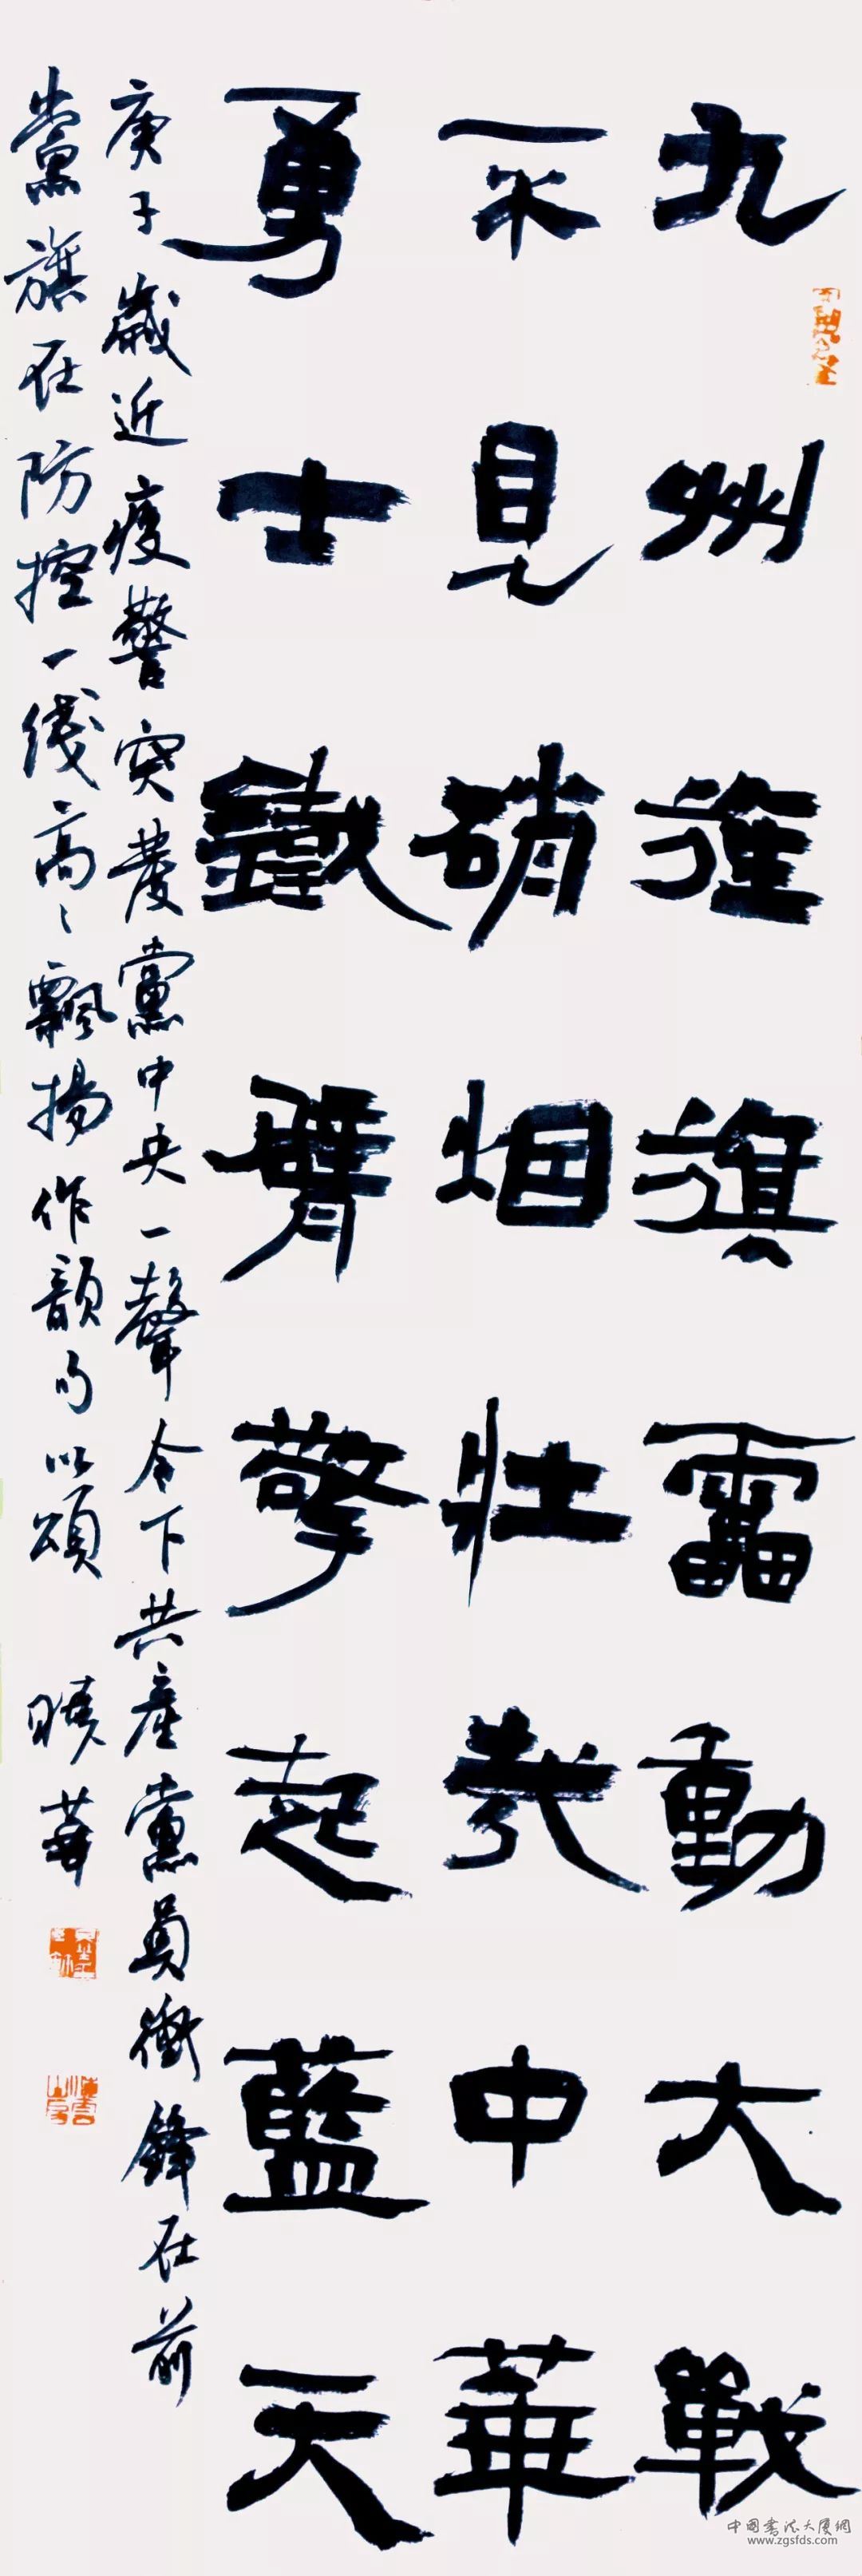 九州旌旗靁動大戰
不見硝烟壯哉中華
勇士鐵臂擎起藍天
庚子歲近疫警突發黨中央一聲令下共產黨員衝鋒在前
黨旗在防控一綫高々飄揚作韻句以頌 曉華
中國書法大廈網
www.zgsfds.com